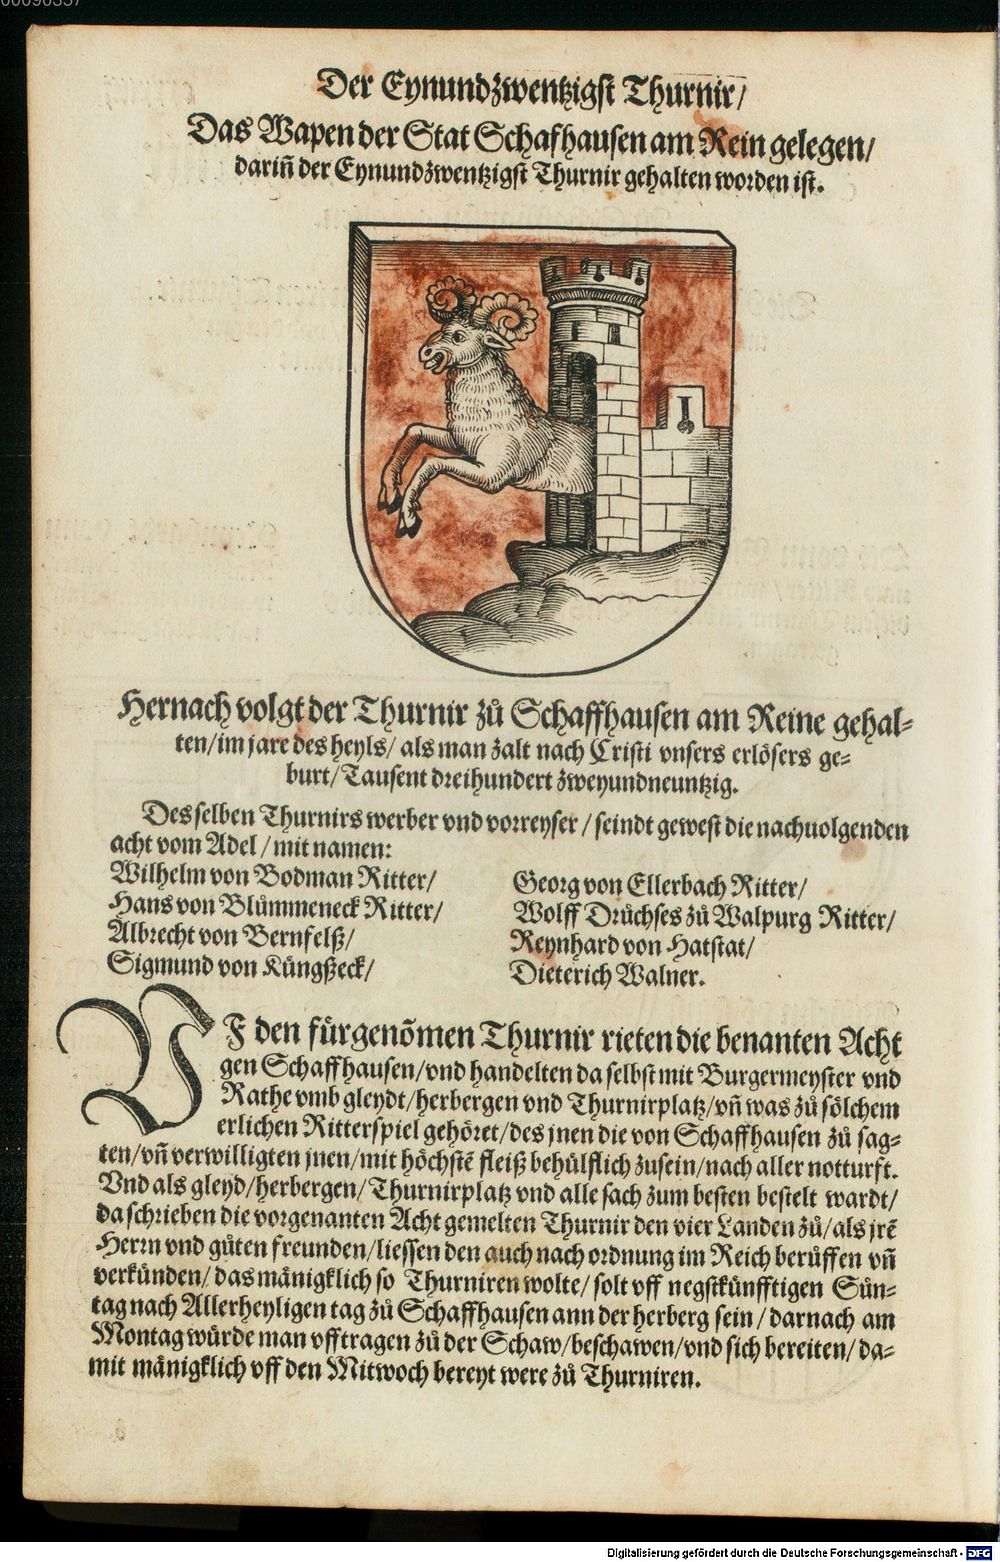 00090357
Der Eynundzwentzigst Thurnir/
Das Wapen der Stat Schafhausen am Rein gelegen/
dariñ der Eynundzwentzigst Thurnir gehalten worden ist.
Hernach volgt der Thurnir zů Schaffhausen am Reine gehal⸗
ten/im jare des heyls/ als man zalt nach Cristi vnsers erlösers ge⸗
burt/Tausent dreihundert zweyundneuntzig.
Des selben Thurnirs werber vnd vorreyser / seindt gewest die nachuolgenden
acht vom Adel / mit namen:
Wilhelm von Bodman Ritter/
Hans von Blůmmeneck Ritter/
Albrecht von Bernfelß/
Sigmund von Küngßeck/
Georg von Ellerbach Ritter/
Wolff Drůchses zů Walpurg Ritter/
Reynhard von Hatstat/
Dieterich Walner.
VF den fürgenõmen Thurnir rieten die benanten Acht
gen Schaffhausen/vnd handelten daselbst mit Burgermeyster vnd
Rathe vmb gleydt/herbergen vnd Thurnirplatz/vñ was zů sölchem
erlichen Ritterspiel gehöret/des jnen die von Schaffhausen zů sag⸗
ten/vñ verwilligten jnen/mit höchstẽ fleiß behülflich zusein/nach aller notturft.
Vnd als gleyd/herbergen/Thurnirplatz vnd alle sach zum besten bestelt wardt/
da schrieben die vorgenanten Acht gemelten Thurnir den vier Landen zů/als jrẽ
Herrn vnd gůten freunden/liessen den auch nach ordnung im Reich berůffen vñ
verkünden/das mänigklich so Thurniren wolte/solt vff negstkünfftigen Sün⸗
tag nach Allerheyligen tag zů Schaffhausen ann der herberg sein/darnach am
Montag würde man vfftragen zů der Schaw/beschawen/vnd sich bereiten/da⸗
mit mänigklich vff den Mitwoch bereyt were zů Thurniren.
Digitalisierung gefördert durch die Deutsche Forschungsgemeinschaft - DFG